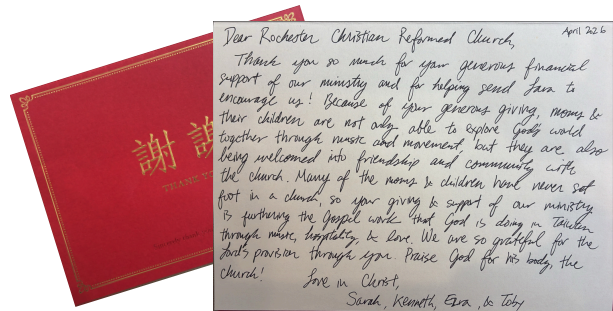 謝 謝
THANK YO
April 2026
Dear Rochester Christian Reformed Church,
Thank you so much for your generous financial
support of our ministry and for helping send Lara to
encourage us! Because of your generous giving, moms &
their children are not only able to explore God's world
together through music and movement, but they are also
being welcomed into friendship and community with
the church. Many of the moms & children have never set
foot in a church, so your giving & support of our ministry
is furthering the Gospel work that God is doing in Taiwan
through music, hospitality, & love. We are so grateful for the
Lord's provision through you. Praise God for his body, the
church!
Love in Christ,
Sarah, Kenneth, Ezra, & Toby